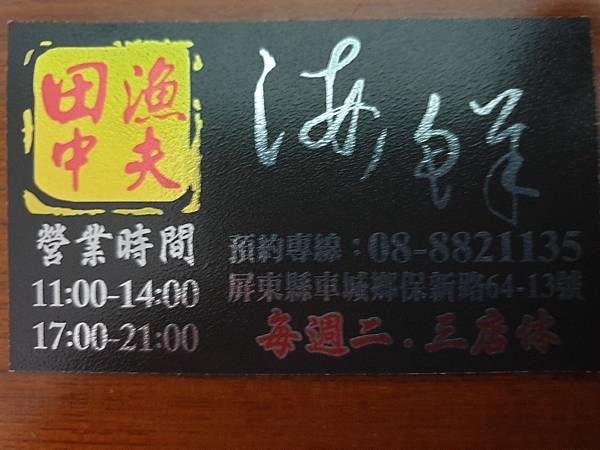 田漁
中夫
海鮮
營業時間
11:00-14:00
17:00-21:00
預約專線：08-8821135
屏東縣車城鄉保新路64-13號
每週二．三店休